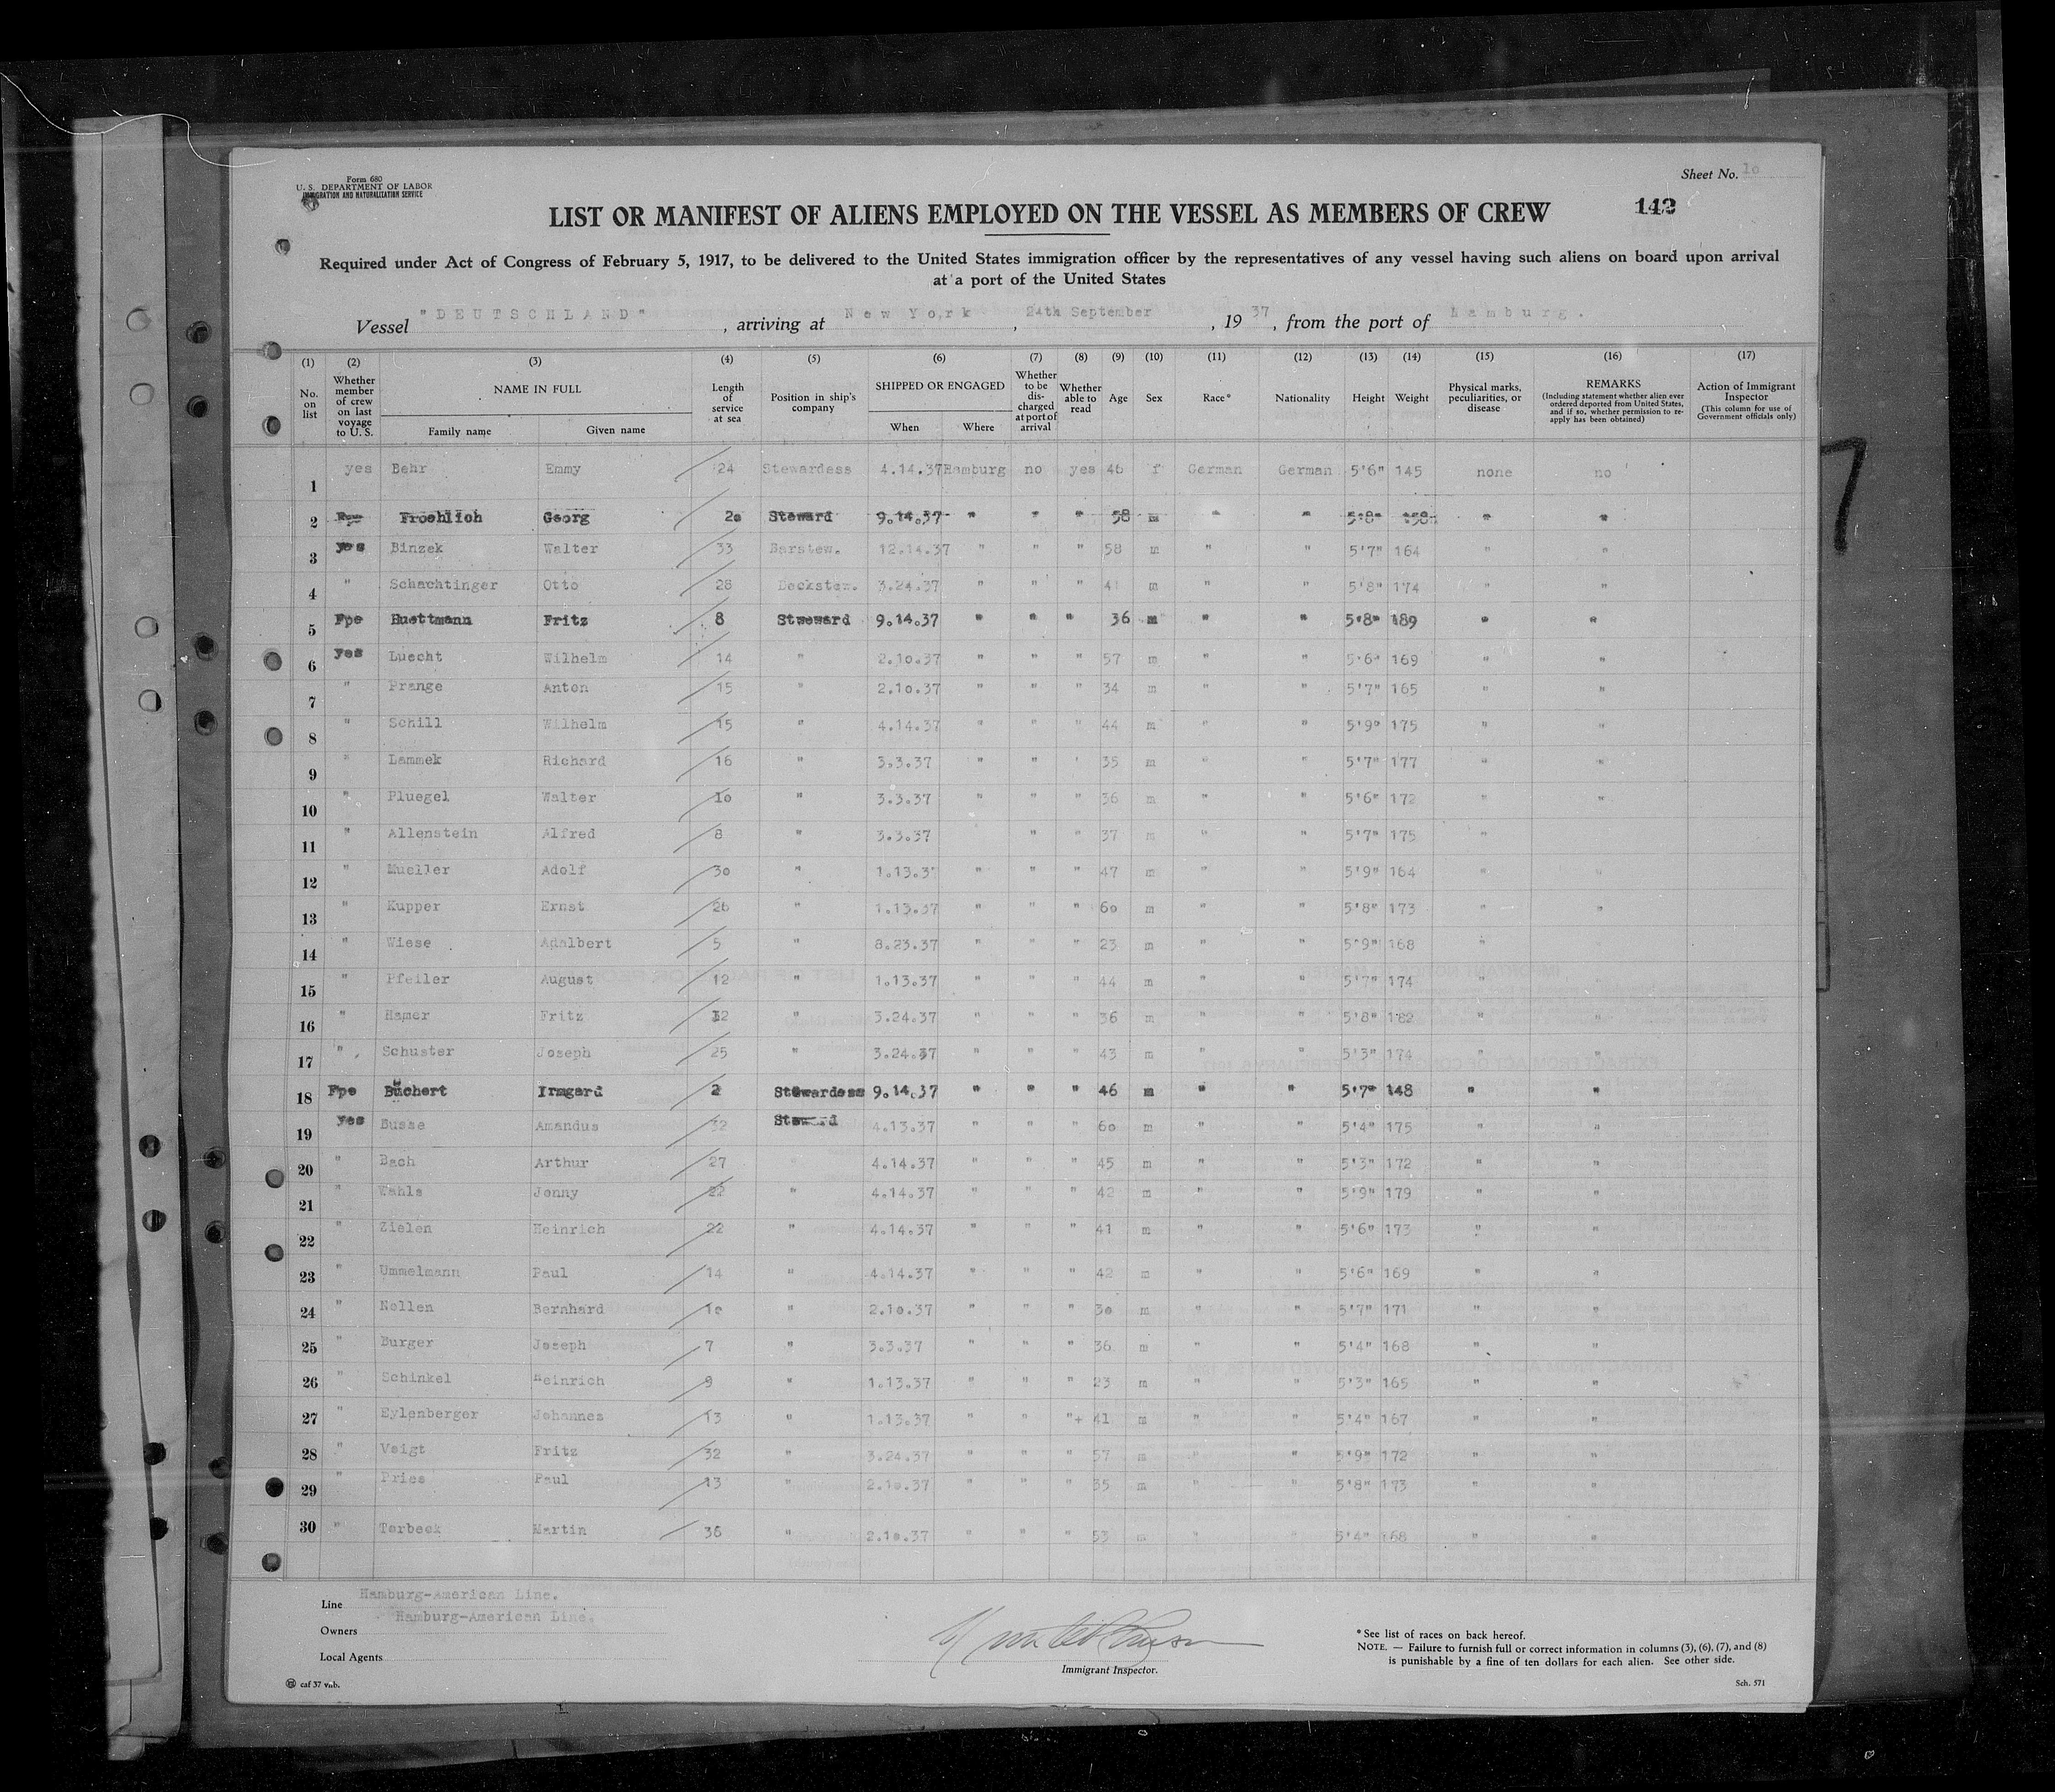 Form 680
U. S. DEPARTMENT OF LABOR
IMMIGRATION AND NATURALIZATION SERVICE
Sheet No. 10
LIST OR MANIFEST OF ALIENS EMPLOYED ON THE VESSEL AS MEMBERS OF CREW
142
Required under Act of Congress of February 5, 1917, to be delivered to the United States immigration officer by the representatives of any vessel having such aliens on board upon arrival
at a port of the United States
Vessel "DEUTSCHLAND", arriving at New York, 24th September, 1937, from the port of Hamburg.
(1) (2) (3) (4) (5) (6) (7) (8) (9) (10) (11) (12) (13) (14) (15) (16) (17)
No. on list
Whether member of crew on last voyage to U. S.
NAME IN FULL
Family name Given name
Length of service at sea
Position in ship's company
SHIPPED OR ENGAGED
When Where
Whether to be discharged at port of arrival
Whether able to read
Age
Sex
Race*
Nationality
Height
Weight
Physical marks, peculiarities, or disease
REMARKS
(Including statement whether alien ever ordered deported from United States, and if so, whether permission to reapply has been obtained)
Action of Immigrant Inspector
(This column for use of Government officials only)
1 yes Behr Emmy 24 Stewardess 4.14.37 Hamburg no yes 46 f German German 5'6" 145 none no
2 Froehlich Georg 20 Steward 9.14.37 " " " 58 m " " 5'8" 158 " "
3 yes Binzek Walter 33 Barstew. 12.14.37 " " " 58 m " " 5'7" 164 " "
4 " Schachtinger Otto 28 Deckstew. 3.24.37 " " " 41 m " " 5'8" 174 " "
5 Fpe Huettmann Fritz 8 Stweward 9.14.37 " " " 36 m " " 5'8" 189 " "
6 yes Luecht Wilhelm 14 " 2.10.37 " " " 57 m " " 5'6" 169 " "
7 " Prange Anton 15 " 2.10.37 " " " 34 m " " 5'7" 165 " "
8 " Schill Wilhelm 15 " 4.14.37 " " " 44 m " " 5'9" 175 " "
9 " Lammek Richard 16 " 3.3.37 " " " 35 m " " 5'7" 177 " "
10 " Pluegel Walter 10 " 3.3.37 " " " 36 m " " 5'6" 172 " "
11 " Allenstein Alfred 8 " 3.3.37 " " 37 m " " 5'7" 175 "
12 " Mueller Adolf 30 " 1.13.3 " " " 47 m " " 5'9" 164 " "
13 " Kupper Ernst 26 " 1.13.37 " " " 60 m " " 5'8" 173 " "
14 " Wiese Adalbert 5 " 8.23.37 " " " 23 m " " 5'9" 168 "
15 " Pfeiler August 12 " 1.13.37 " " " 44 m " " 5'7" 174 " "
16 " Hamer Fritz 12 " 3.24.37 " " " 36 m " " 5'8" 182 " "
17 " Schuster Joseph 25 " 3.24.37 " " " 43 m " " 5'3" 174 " "
18 Fpe Büchert Irmgard 2 Stewardess 9.14.37 " " " 46 m " " 5'7" 148 " "
19 yes Busse Amandus 32 Steward 4.13.37 " " " 60 m " " 5'4" 175 " "
20 " Bach Arthur 27 " 4.14.37 " " " 45 m " " 5'3" 172 " "
21 " Wahls Jonny 22 " 4.14.37 " " " 42 m " " 5'9" 179 " "
22 " Zielen Heinrich 22 " 4.14.37 " " " 41 m " " 5'6" 173 " "
23 " Ummelmann Paul 14 " 4.14.37 " " " 42 m " " 5'6" 169 " "
24 " Nollen Bernhard 10 " 2.10.37 " " " 30 m " " 5'7" 171 " "
25 " Burger Joseph 7 " 3.3.37 " " " 36 m " " 5'4" 168 " "
26 " Schinkel Heinrich 9 " 1.13.37 " " " 23 m " " 5'3" 165 " "
27 " Eylenberger Johannes 13 " 1.13.37 " " "+ 41 m " " 5'4" 167 " "
28 " Voigt Fritz 32 " 3.24.37 " " " 57 m " " 5'9" 172 " "
29 " Pries Paul 13 " 2.10.37 " " " 35 m " " 5'8" 173 " "
30 " Terbeck Martin 36 " 2.10.37 " " " 53 m " " 5'4" 168 " "
Line Hamburg-American Line.
Owners Hamburg-American Line.
Local Agents
Immigrant Inspector.
*See list of races on back hereof.
NOTE. — Failure to furnish full or correct information in columns (3), (6), (7), and (8)
is punishable by a fine of ten dollars for each alien. See other side.
caf 37 vnb.
Sch. 571
7